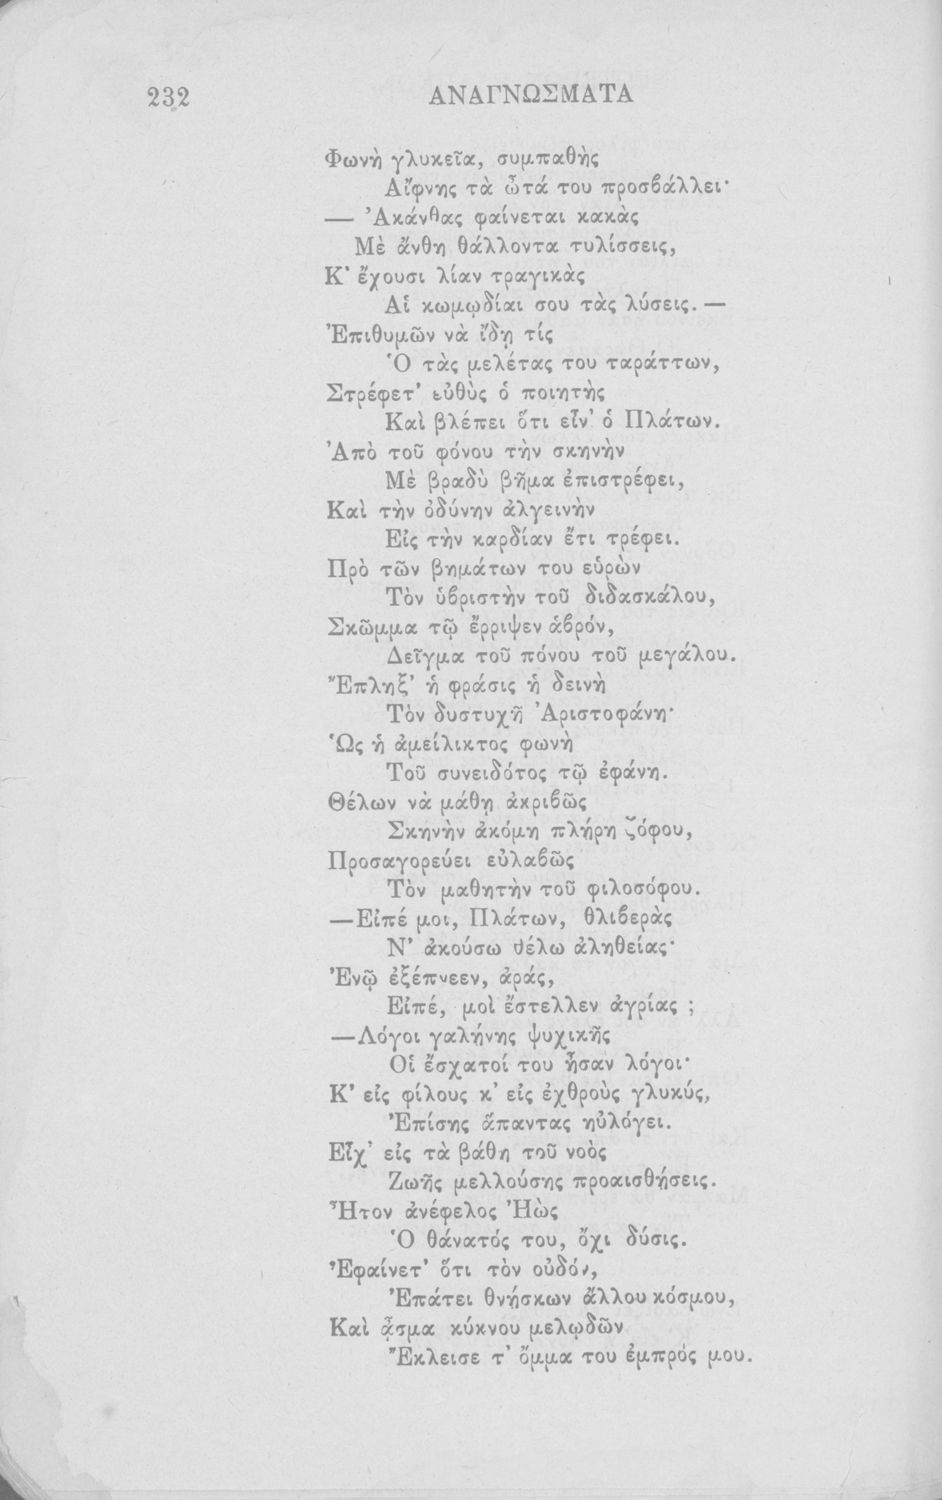 232 ΑΝΑΓΝΩΣΜΑΤΑ
Φωνὴ γλυκεῖα, συμπαθὴς
Αἴφνης τὰ ὦτά του προσβάλλει·
— Ἀκάνθας φαίνεται κακὰς
Μὲ ἄνθη θάλλοντα τυλίσσεις,
Κ' ἔχουσι λίαν τραγικὰς
Αἱ κωμῳδίαι σου τὰς λύσεις. —
Ἐπιθυμῶν νὰ ἴδῃ τίς
Ὁ τὰς μελέτας του ταράττων,
Στρέφετ' εὐθὺς ὁ ποιητὴς
Καὶ βλέπει ὅτι εἶν' ὁ Πλάτων.
Ἀπὸ τοῦ φόνου τὴν σκηνὴν
Μὲ βραδὺ βῆμα ἐπιστρέφει,
Καὶ τὴν ὀδύνην ἀλγεινὴν
Εἰς τὴν καρδίαν ἔτι τρέφει.
Πρὸ τῶν βημάτων του εὑρὼν
Τὸν ὑβριστὴν τοῦ διδασκάλου,
Σκῶμμα τῷ ἔρριψεν ἁβρόν,
Δεῖγμα τοῦ πόνου τοῦ μεγάλου.
Ἔπληξ' ἡ φράσις ἡ δεινὴ
Τὸν δυστυχῆ Ἀριστοφάνη·
Ὡς ἡ ἀμείλικτος φωνὴ
Τοῦ συνειδότος τῷ ἐφάνη.
Θέλων νὰ μάθῃ ἀκριβῶς
Σκηνὴν ἀκόμη πλήρη ζόφου,
Προσαγορεύει εὐλαβῶς
Τὸν μαθητὴν τοῦ φιλοσόφου.
—Εἰπέ μοι, Πλάτων, θλιβερὰς
Ν' ἀκούσω θέλω ἀληθείας·
Ἐνῷ ἐξέπνεεν, ἀράς,
Εἰπέ, μοὶ ἔστελλεν ἀγρίας ;
—Λόγοι γαλήνης ψυχικῆς
Οἱ ἔσχατοί του ἦσαν λόγοι·
Κ' εἰς φίλους κ' εἰς ἐχθροὺς γλυκύς,
Ἐπίσης ἅπαντας ηὐλόγει.
Εἶχ' εἰς τὰ βάθη τοῦ νοὸς
Ζωῆς μελλούσης προαισθήσεις.
Ἦτον ἀνέφελος Ἠὼς
Ὁ θάνατός του, ὄχι δύσις.
Ἐφαίνετ' ὅτι τὸν οὐδόν,
Ἐπάτει θνήσκων ἄλλου κόσμου,
Καὶ ᾆσμα κύκνου μελῳδῶν
Ἔκλεισε τ' ὄμμα του ἐμπρός μου.